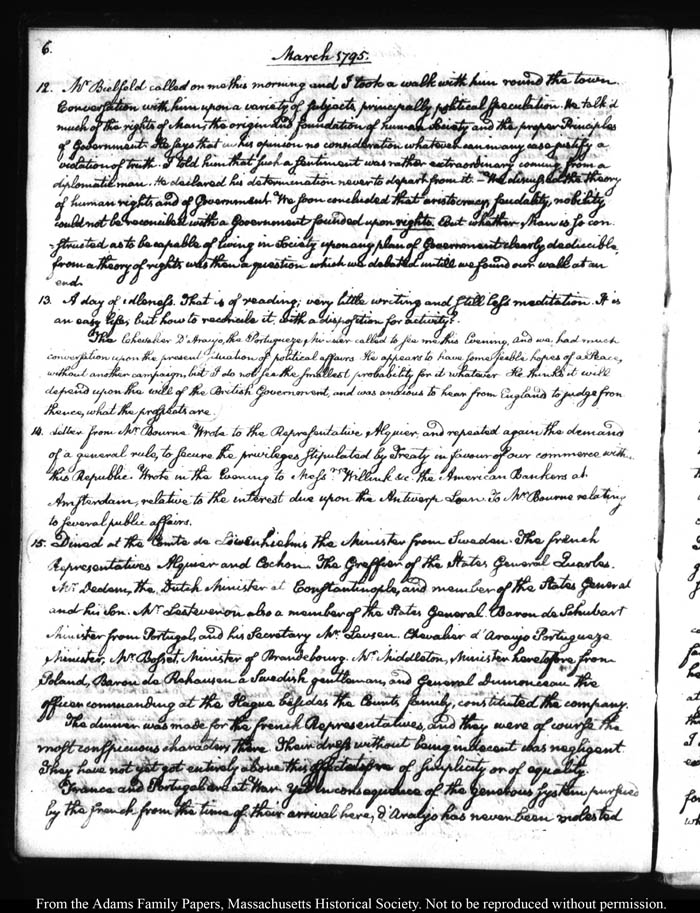 6.
March 1795.
12. Mr Bielfeld called on me this morning and I took a walk with him round the town.
Conversation with him upon a variety of subjects, principally political speculation. He talk'd
much of the rights of Man, the origin and foundation of human Society and the proper Principles
of Government. He says that in his opinion no consideration whatever can in any case justify a
violation of truth. I told him that such a sentiment was rather extraordinary coming from a
diplomatic man. He declared his determination never to depart from it. We discussed the theory
of human rights and of Government. We soon concluded that aristocracy, feudality, nobility
could not be reconciled with a Government founded upon rights. But whether Man is so con
-structed as to be capable of living in Society upon any plan of Government clearly deducible
from a theory of rights was then a question which we debated untill we found our walk at an
end.
13. A day of idleness. That is of reading; very little writing and still less meditation. It is
an easy life; but how to reconcile it with a disposition for activity?
The Chevalier D'Araujo, the Portugueze Minister called to see me this Evening, and we had much
conversation upon the present situation of political affairs. He appears to have some feeble hopes of a Peace,
without another campaign, but I do not see the smallest probability for it whatever. He thinks it will
depend upon the will of the British Government, and was anxious to hear from England to judge from
thence, what the prospects are.
14. Letter from Mr Bourne. Wrote to the Representative Alquier, and repeated again the demand
of a general rule, to secure the privileges stipulated by treaty in favour of our commerce with
this Republic. Wrote in the Evening to Messrs Willink &c the American Bankers at
Amsterdam, relative to the interest due upon the Antwerp Loan. To Mr Bourne relating
to several public affairs.
15. Dined at the Comte de Löwenhielms the Minister from Sweden. The french
Representatives Alquier and Cochon. The Greffier of the States General Quarles.
Mr Dedem, the Dutch Minister at Constantinople, and member of the States General
and his Son. Mr Lestevenon also a member of the States General. Baron de Schubart
Minister from Portugal, and his Secretary Mr Levsen. Chevalier d'Araujo Portugueze
Minister, Mr Bosset, Minister of Brandebourg. Mr Middleton, Minister heretofore from
Poland, Baron de Rehausen a Swedish gentleman, and General Dumonceau the
officer commanding at the Hague besides the Counts family, constituted the company.
The dinner was made for the french Representatives, and they were of course the
most conspicuous characters there. Their dress without being indecent was negligent.
They have not yet got entirely above this affectation of simplicity or of equality.
France and Portugal are at War. Yet in consequence of the generous system pursued
by the french from the time of their arrival here, d'Araujo has never been molested
From the Adams Family Papers, Massachusetts Historical Society. Not to be reproduced without permission.